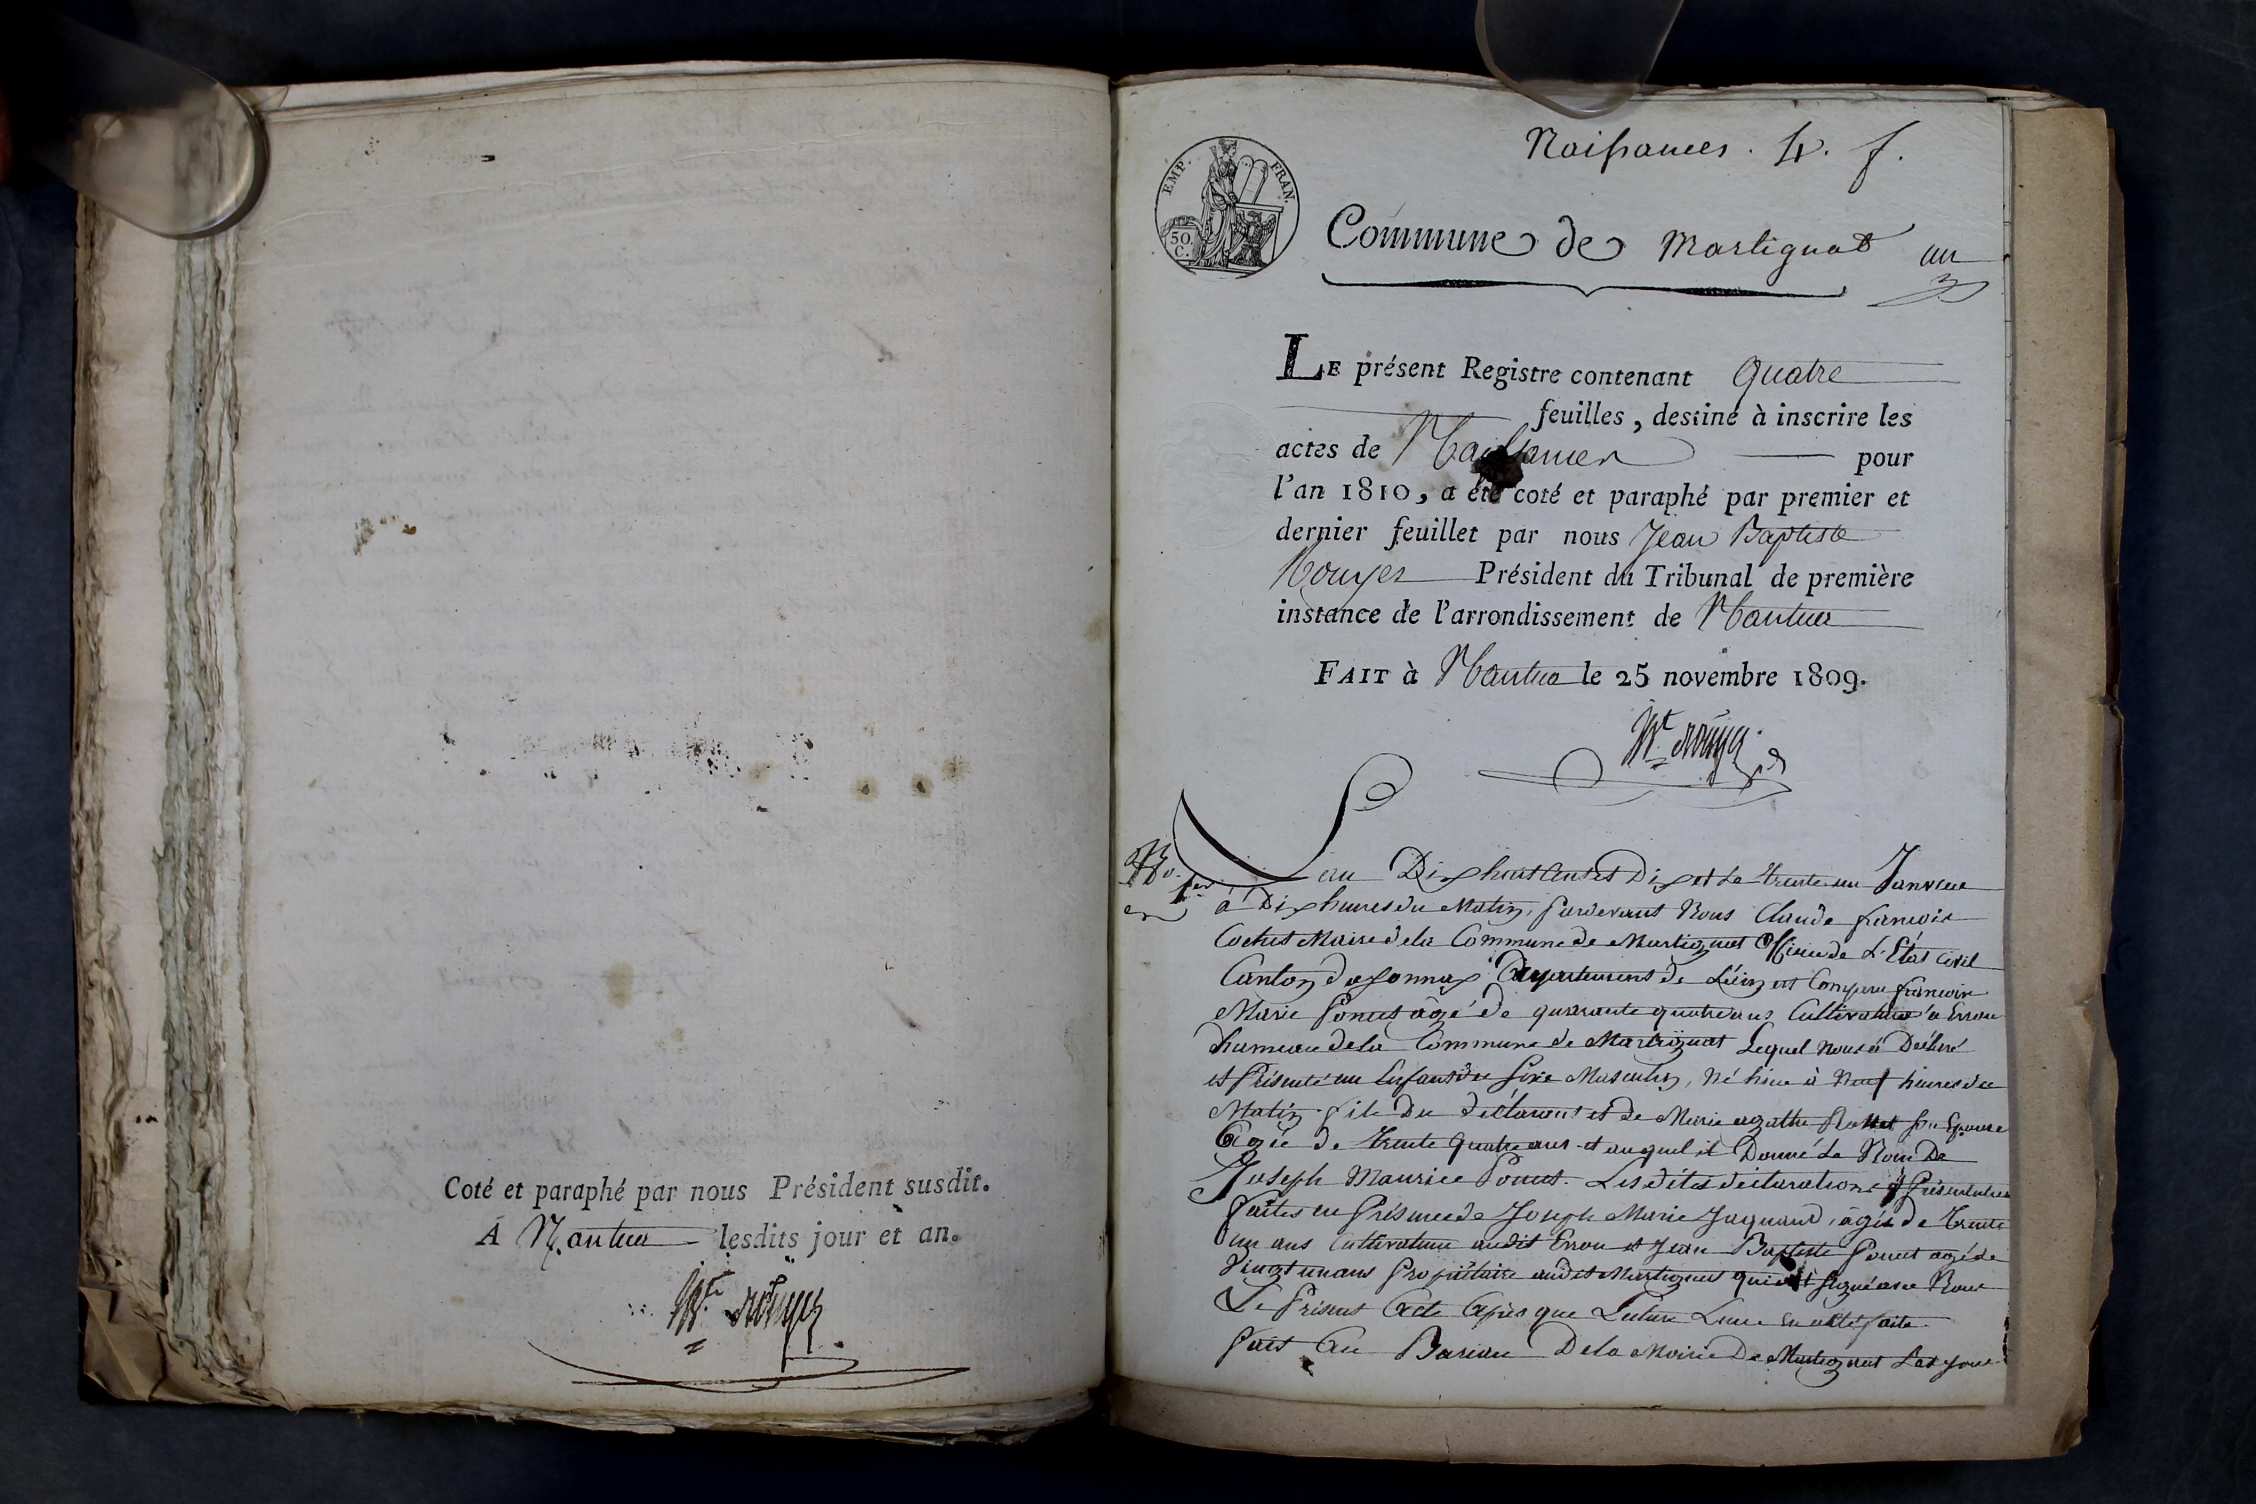 Coté et paraphé par nous Président susdit.
A Nantua lesdits jour et an.
Naissances. 4. f.
EMP. FRAN.
50.
C.
Commune de Martignat
un
LE présent Registre contenant quatre
feuilles, destiné à inscrire les
actes de Naissances pour
l'an 1810, a été coté et paraphé par premier et
dernier feuillet par nous Jean Baptiste
Rouyer Président du Tribunal de première
instance de l'arrondissement de Nantua
FAIT à Nantua le 25 novembre 1809.
No. 1er
L'an Dix huit Cent et Dix et le trente un Janvier
à Dix heures du Matin, pardevant Nous Claude françois
Maire de la Commune de Martignat Officier de L'Etat civil
Canton doyonnax Département de Léin est Comparu françois
Marie Poncet âgé de quarante quatre ans Cultivateur à Errou
hameau de la Commune de Martignat Lequel nous à Déclaré
et Présenté un Enfant du sexe Masculin, né hier à Neuf heures du
Matin fils Du déclarant et de Marie agathe son Epouse
Agée de trente quatre ans et auquel il Donné Le Nom De
Joseph Maurice Poncet. Les dites déclaration et Présentation
faites en Présence de Joseph Marie Jaquand, âgé de trente
un ans Cultivateur audit Errou et Jean Baptiste Poncet agé de
Vingt un ans Propriétaire audit Martignat qui ont signé avec Nous
Le Présent Acte Après que Lecture Leur en a été faite.
fait Au Bureau De la Mairie De Martignat Les jour